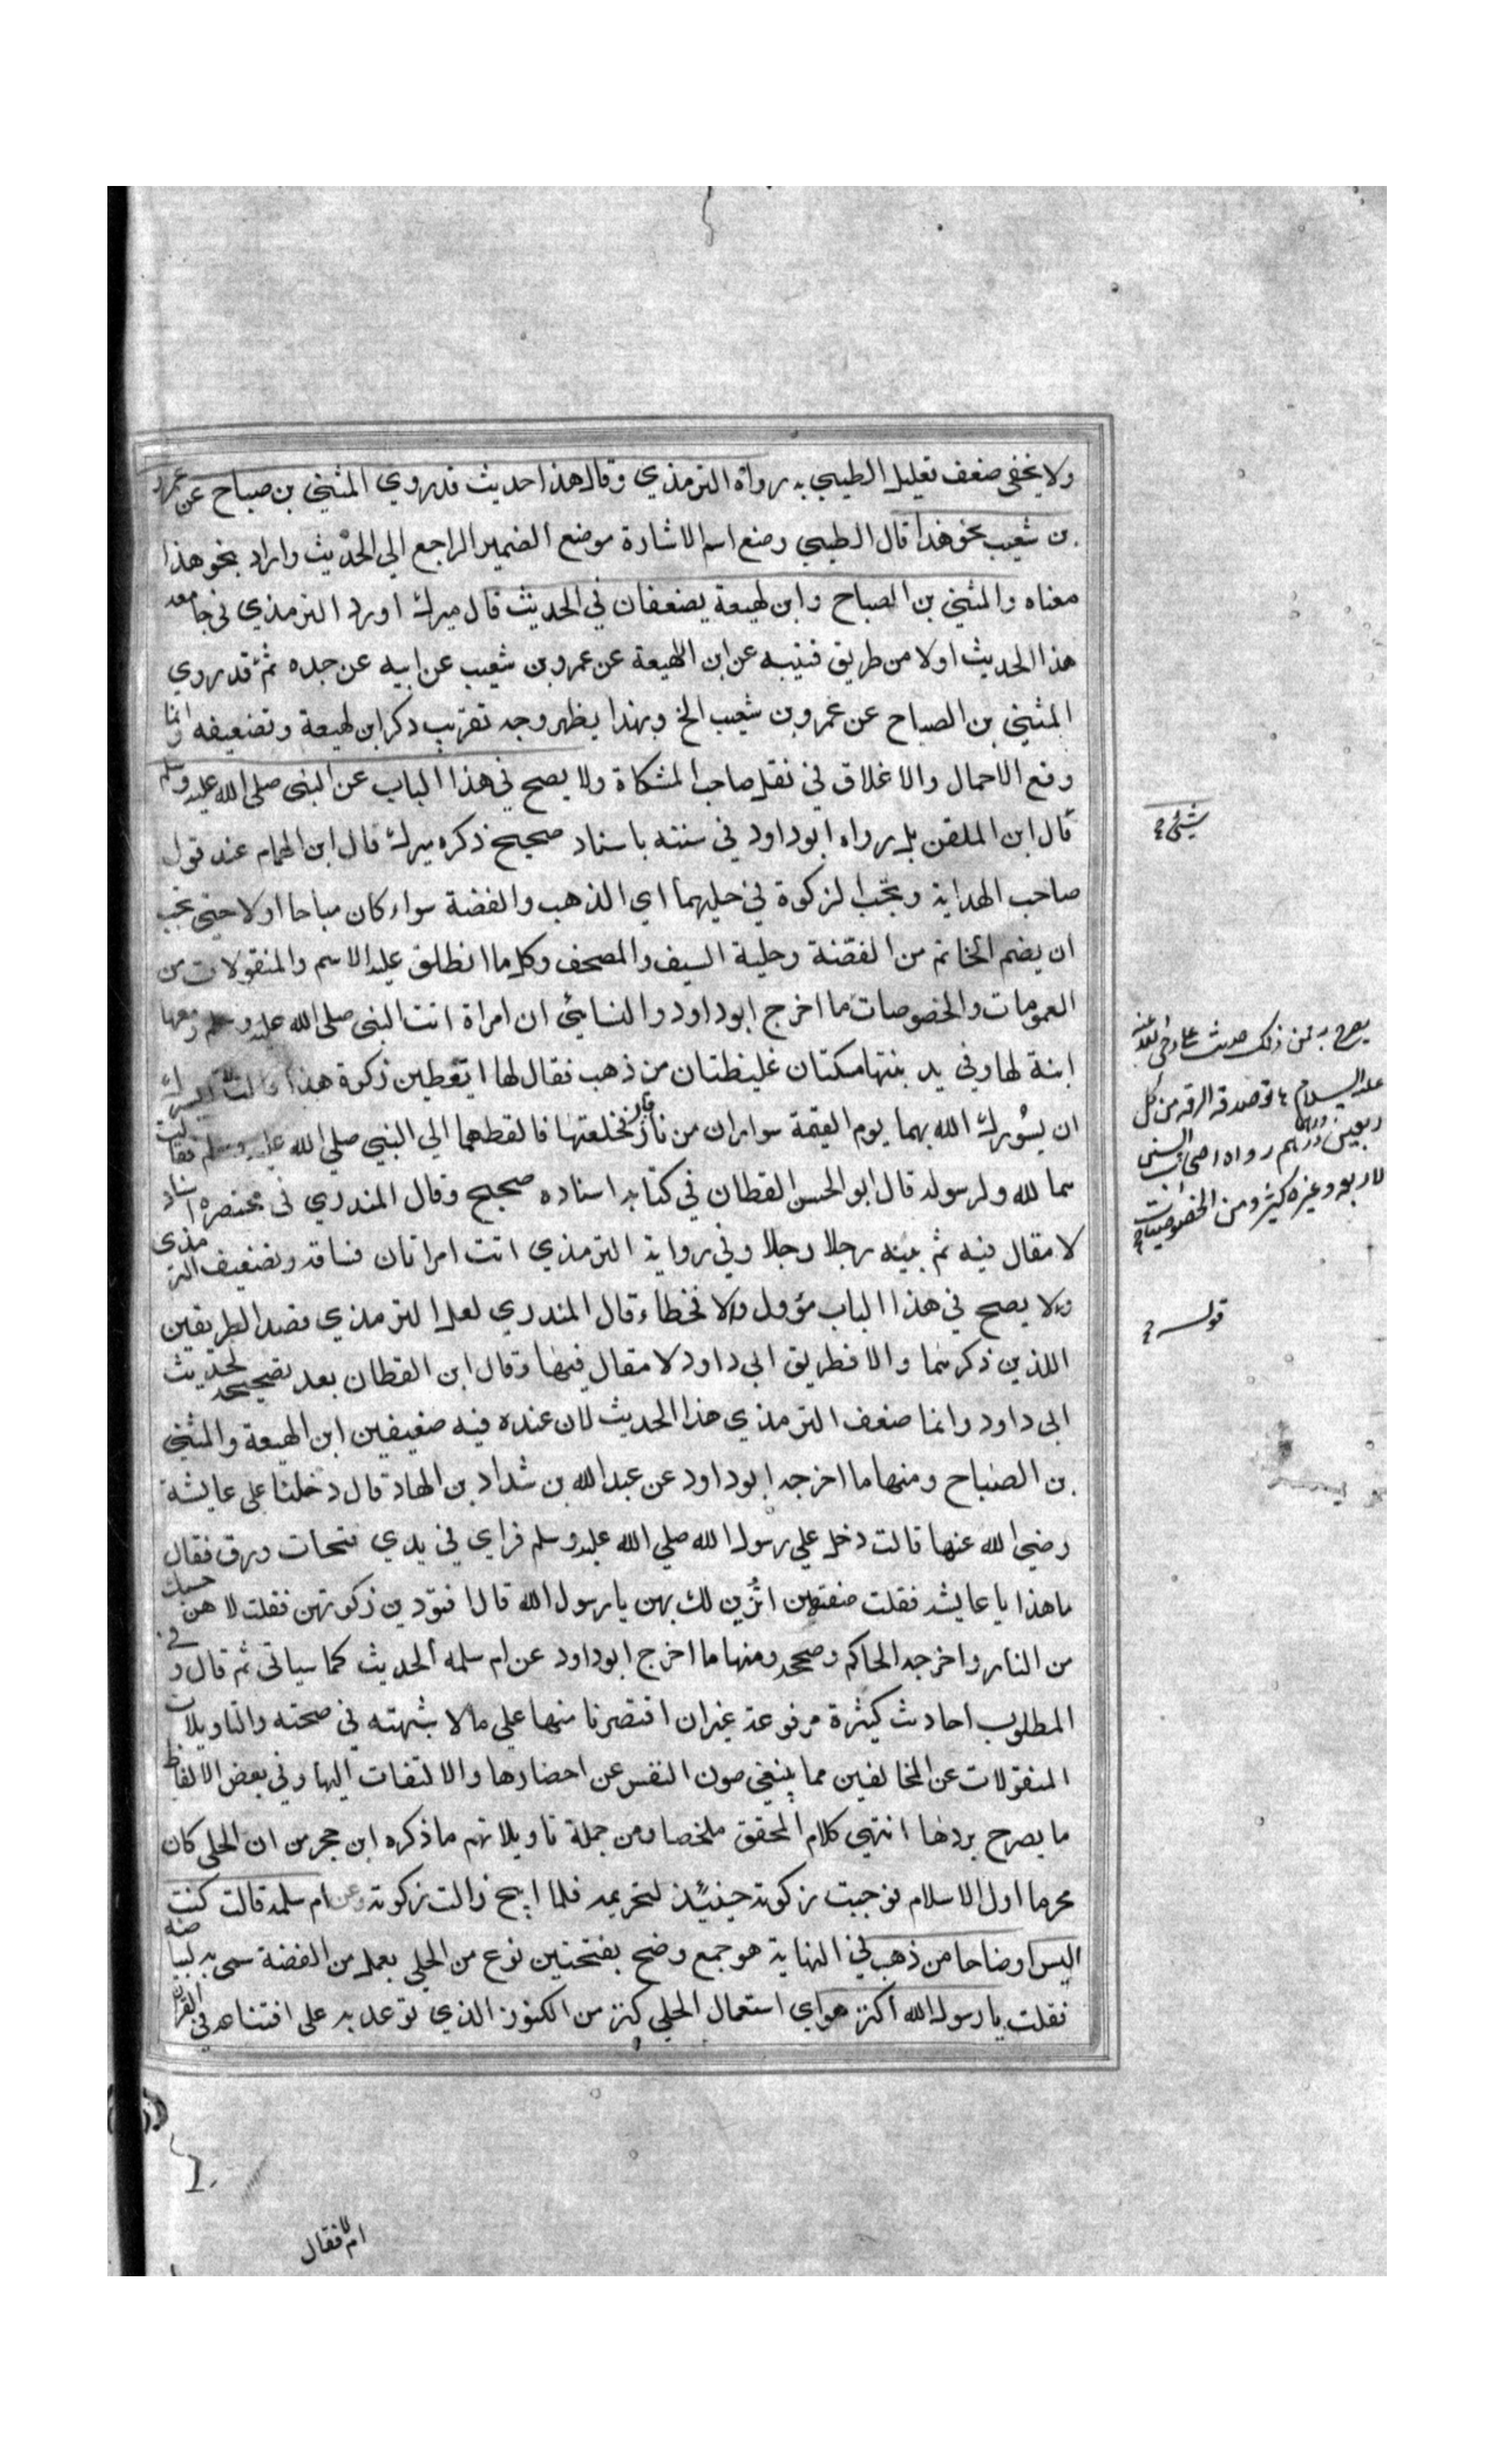 ولا يخفى ضعف تعليل الطيبي به رواه الترمذي وقال هذا حديث قد روي المثني بن صباح عن عمرو
بن شعيب نحو هذا قال الطيبي وضع اسم الاشارة موضع الضمير الراجع الي الحديث واراد بنحو هذا
معناه والمثني بن الصباح وابن لهيعة يضعفان في الحديث قال ميرك اورد الترمذي في جامعه
هذا الحديث اولا من طريق قتيبه عن ابن لهيعة عن عمرو بن شعيب عن ابيه عن جده ثم قد روي
المثني بن الصباح عن عمرو بن شعيب الخ وبهذا يظهر وجه تقريب ذكر ابن لهيعة وتضعيفه وانما
وقع الاحمال والاغلاق في نقل صاحب المشكاة ولا يصح في هذا الباب عن النبي صلى الله عليه وسلم
شيئ
قال ابن الملقن بل رواه ابوداود في سننه باسناد صحيح ذكره ميرك قال ابن الهمام عند قول
صاحب الهداية وتجب الزكوة في حليهما اي الذهب والفضة سواء كان مباحا اولا حتي يجب
ان يضم الخاتم من الفضة وحلية السيف والمصحف وكل ما انطلق عليه الاسم والمنقولات من
العمومات والخصوصات ما اخرج ابوداود والنسائي ان امراة اتت النبي صلى الله عليه وسلم ومعها
يصرح به فمن ذلك حديث علي رضي الله عنه
عليه السلام هاتوا صدقه الرقه من كل
اربعين درهما درهم رواه اصحاب السنن
الاربعه وغيره كثير ومن الخصوصيات
ابنة لها وفي يد بنتها مسكتان غليظتان من ذهب فقال لها اتعطين زكوة هذا قالت لا قال ايسرك
ان يسورك الله بهما يوم القيمة سواران من نار قال فخلعتها فالقطهما الي النبي صلي الله عليه وسلم فقالت
هما لله ولرسوله قال ابو الحسن القطان في كتابه اسناده صحيح وقال المندري في مختصره اسناد
لا مقال فيه ثم بينه رجلا رجلا وفي رواية الترمذي اتت امراتان فساقه وتضعيف الترمذي
قوله
ولا يصح في هذا الباب مؤول والا فخطاء قال المندري لعل الترمذي قصد الطريقين
اللذين ذكرهما والا فطريق ابي داود لا مقال فيها وقال ابن القطان بعد تصحيحه لحديث
ابي داود وانما ضعف الترمذي هذا الحديث لان عنده فيه ضعيفين ابن الهيعة والمثني
بن الصباح ومنها ما اخرجه ابوداود عن عبد الله بن شداد بن الهاد قال دخلنا على عايشة
رضي الله عنها قالت دخل علي رسول الله صلي الله عليه وسلم فراي في يدي فتحات ورق فقال
ما هذا يا عايشه فقلت صنعتهن اتزين لك بهن يا رسول الله قال افتودين زكوتهن فقلت لا هن حسبك
من النار واخرجه الحاكم وصححه ومنها ما اخرج ابوداود عن ام سلمه الحديث كما سياتي ثم قال وفي
المطلوب احاديث كثيرة مرفوعة غير ان اقتصرنا منها علي ما لا شبهته في صحته والتاويلات
المنقولات عن المخالفين مما ينبغي صون النفس عن احضارها والالتفات اليها وفي بعض الالفاظ
ما يصرح بردها انتهى كلام المحقق ملخصا ومن جملة تاويلاتهم ما ذكره ابن حجر من ان الحلي كان
محرما اول الاسلام فوجبت زكوته حينئذ لتحريمه فلما ابيح زالت زكوته وعن ام سلمه قالت كنت
البس اوضاحا من ذهب في النهاية هو جمع وضح بفتحتين نوع من الحلي يعمل من الفضة سمي به لبياضه
فقلت يا رسول الله اكنز هو اي استعمال الحلي كنز من الكنوز الذي توعد به على اقتناءه في القران
ام لا فقال